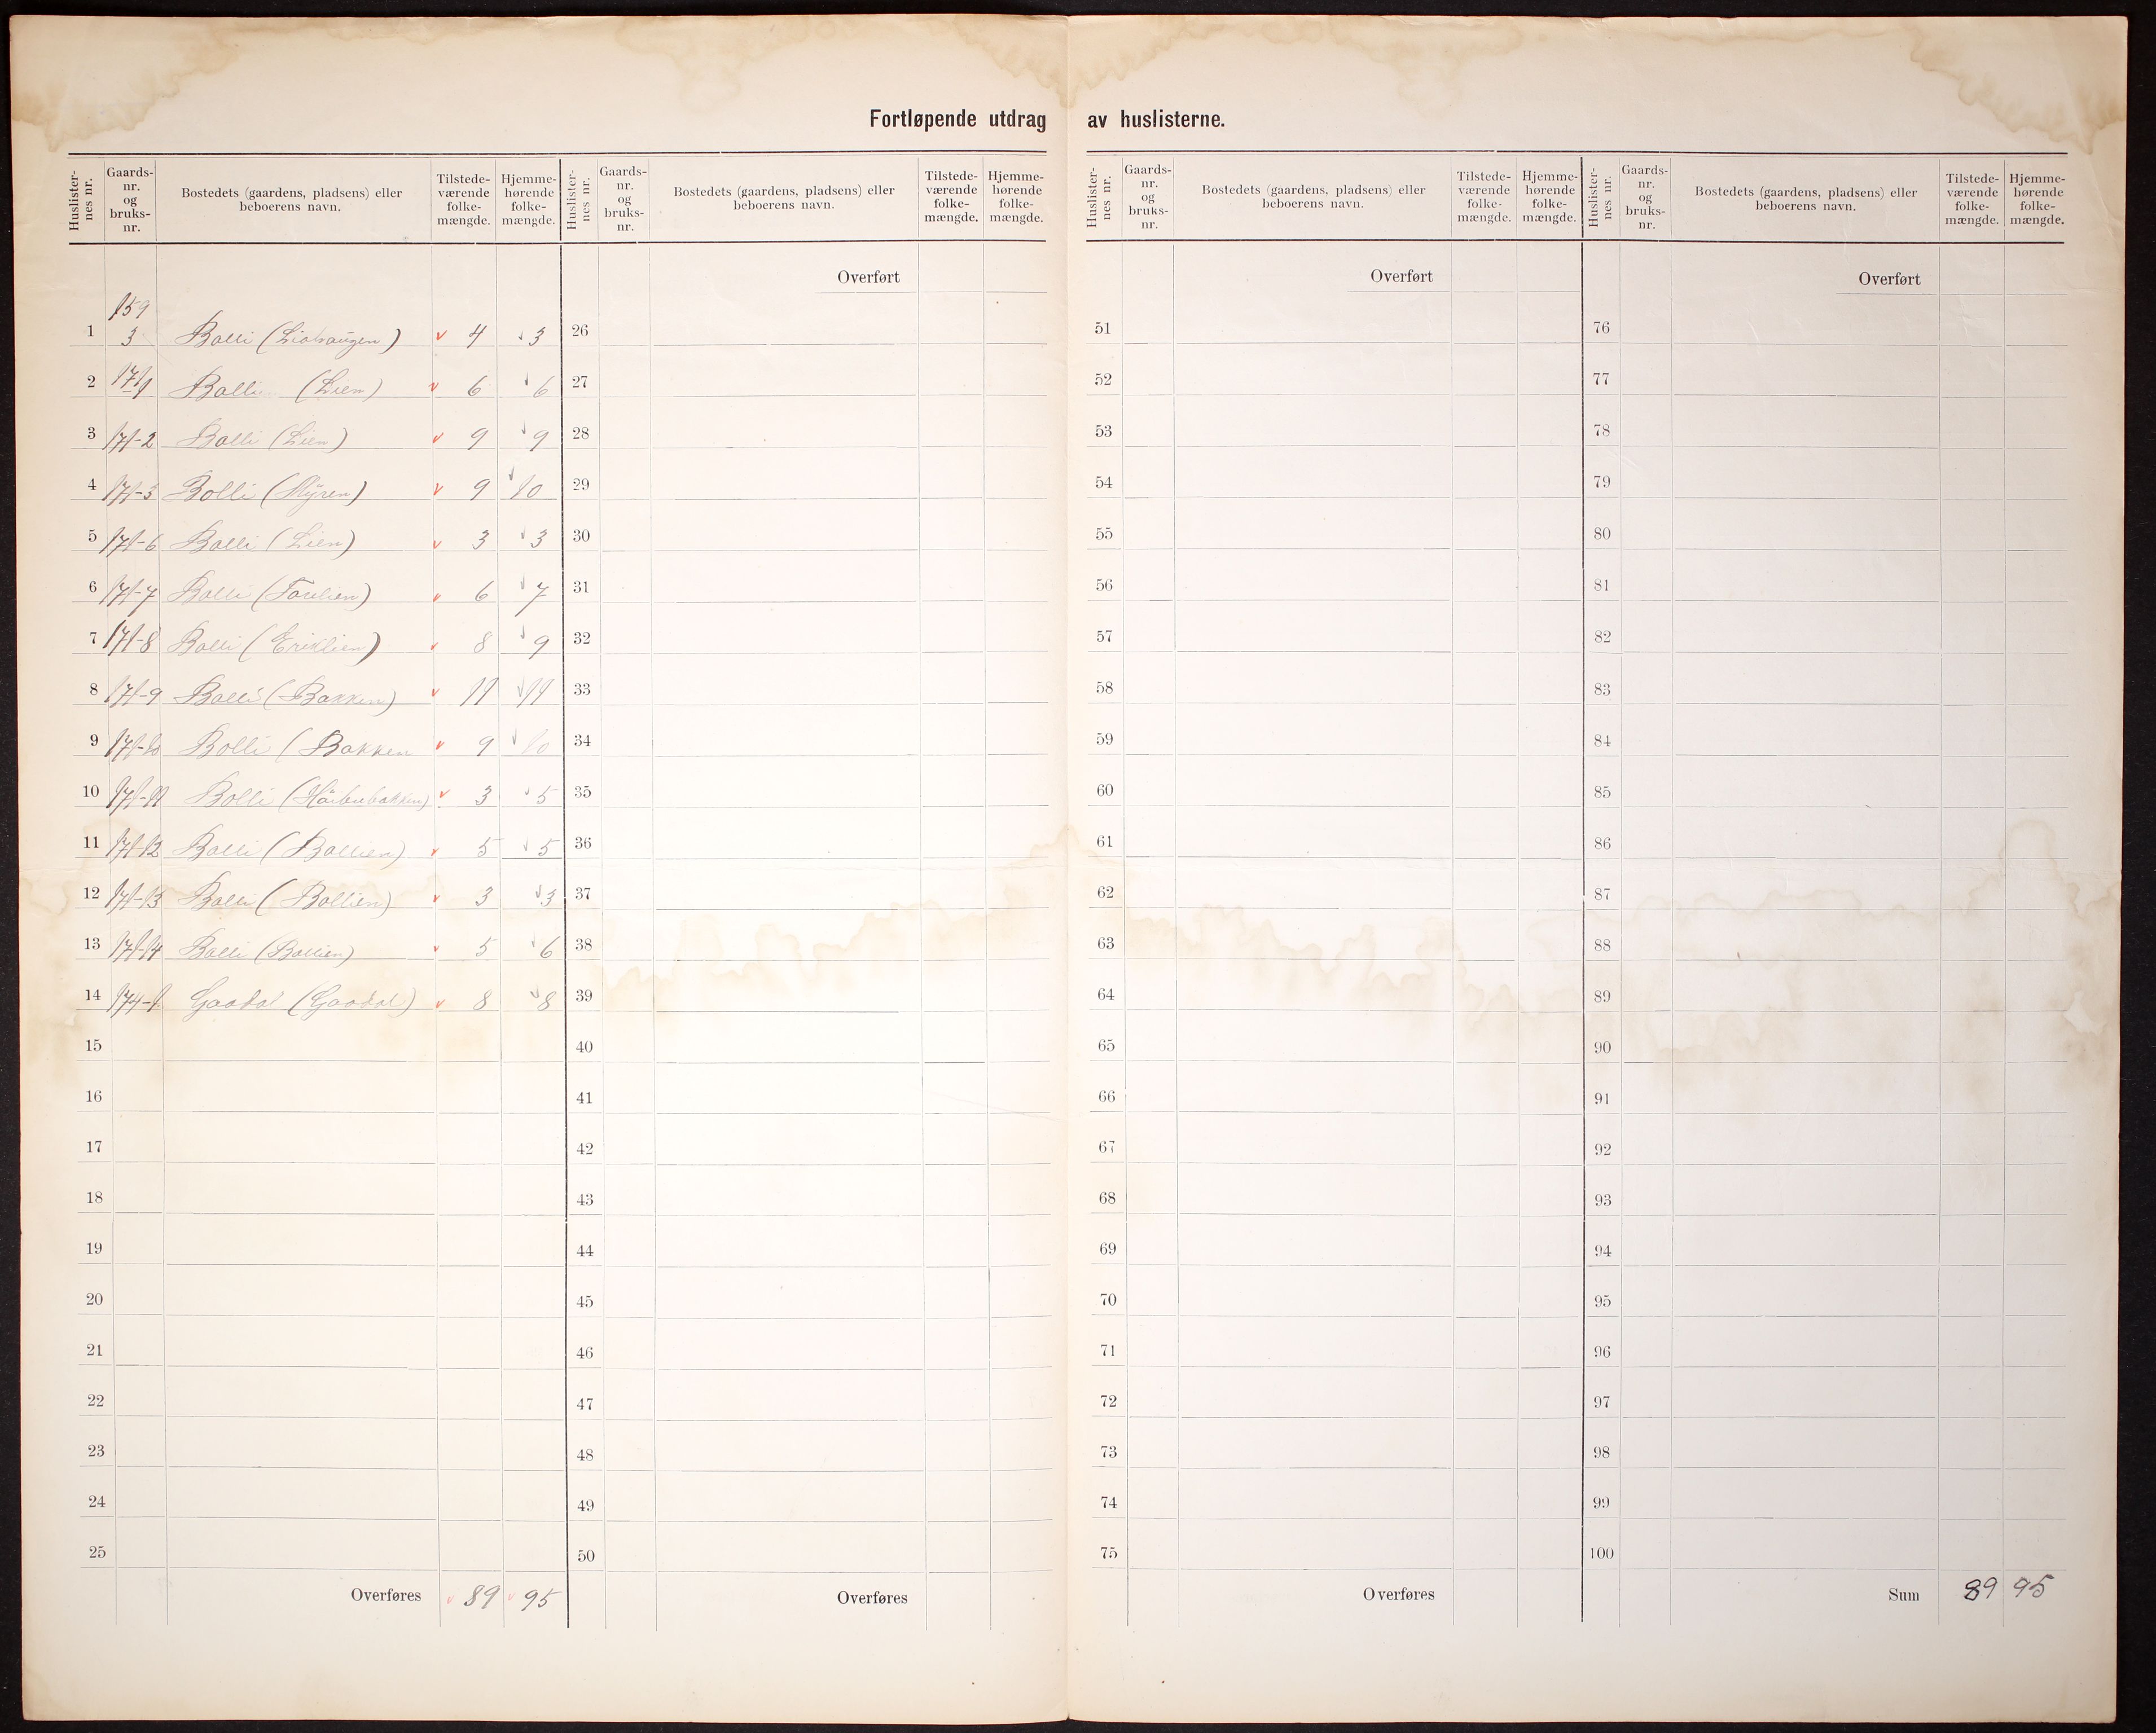 Fortløpende utdrag av huslisterne.
Huslisternes nr. Gaards-nr. og bruks-nr. Bostedets (gaardens, pladsens) eller beboerens navn. Tilstede-værende folke-mængde. Hjemme-hørende folke-mængde. Huslisternes nr. Gaards-nr. og bruks-nr. Bostedets (gaardens, pladsens) eller beboerens navn. Tilstede-værende folke-mængde. Hjemme-hørende folke-mængde. Huslisternes nr. Gaards-nr. og bruks-nr. Bostedets (gaardens, pladsens) eller beboerens navn. Tilstede-værende folke-mængde. Hjemme-hørende folke-mængde. Huslisternes nr. Gaards-nr. og bruks-nr. Bostedets (gaardens, pladsens) eller beboerens navn. Tilstede-værende folke-mængde. Hjemme-hørende folke-mængde.
Overført Overført Overført
159
1 3 Bolli 4 3 26 51 76
2 171/1 Bolli (Lien) 6 6 27 52 77
3 171-2 Bolli (Lien) 9 9 28 53 78
4 171-3 Bolli (Myren) 9 10 29 54 79
5 171-6 Bolli (Lien) 3 3 30 55 80
6 171-7 Bolli 6 7 31 56 81
7 171-8 Bolli (Eriklien) 8 9 32 57 82
8 171-9 Bolli (Bakken) 11 11 33 58 83
9 171-10 Bolli (Bakken 9 10 34 59 84
10 171-11 Bolli 3 5 35 60 85
11 171-12 Bolli (Bollien) 5 5 36 61 86
12 171-13 Bolli (Bollien) 3 3 37 62 87
13 171-14 Bolli (Bollien) 5 6 38 63 88
14 174-1 Gaadal (Gaadal) 8 8 39 64 89
15 40 65 90
16 41 66 91
17 42 67 92
18 43 68 93
19 44 69 94
20 45 70 95
21 46 71 96
22 47 72 97
23 48 73 98
24 49 74 99
25 50 75 100
Overføres 89 95 Overføres Overføres Sum 89 95